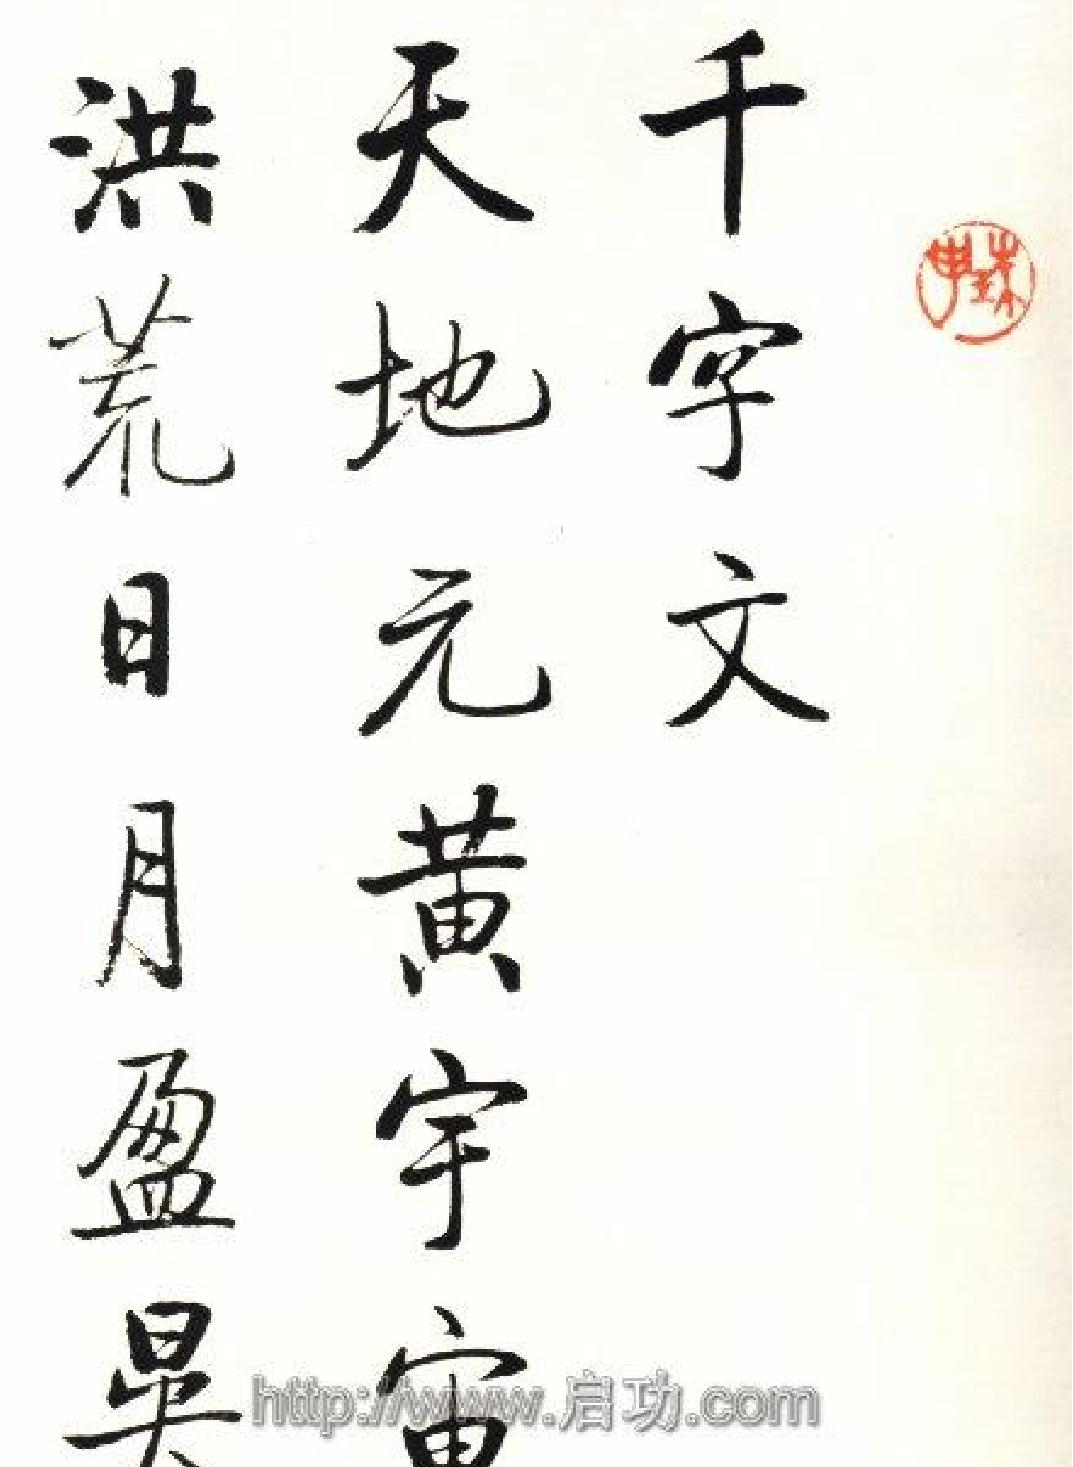 千字文
天地元黄宇宙
洪荒日月盈昃
http://www.启功.com